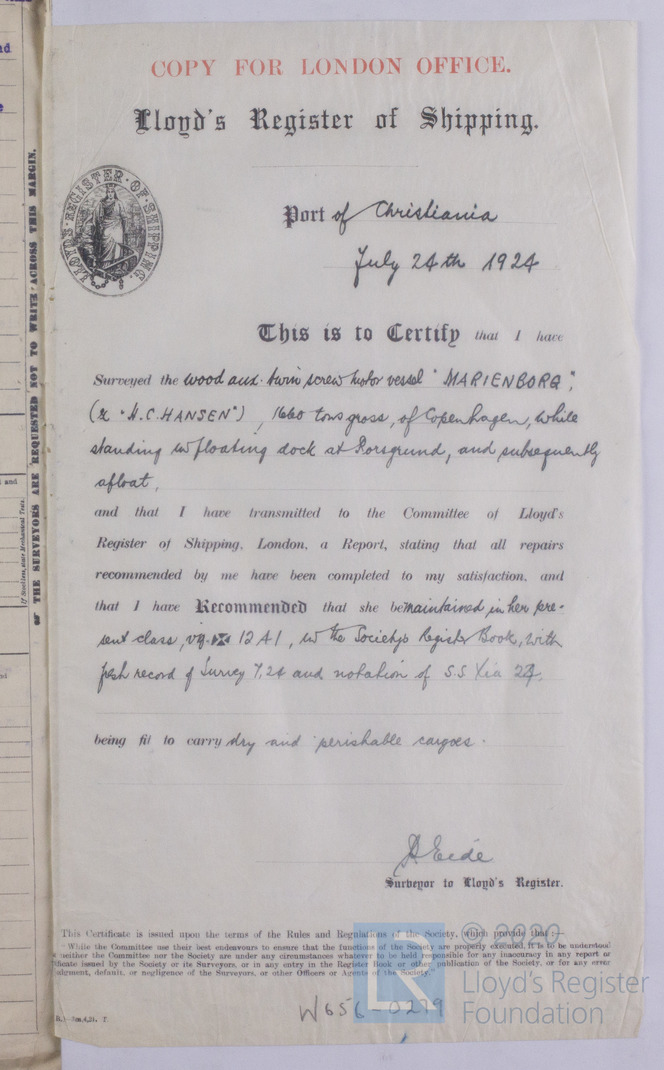 COPY FOR LONDON OFFICE.
Lloyd's Register of Shipping.
LLOYD'S REGISTER OF SHIPPING
Port of Christiania
July 24th 1924
This is to Certify that I have
Surveyed the wood aux. twin screw motor vessel "MARIENBORG",
(ex "H.C. HANSEN"), 1660 tons gross, of Copenhagen, while
standing in floating dock at Porsgrund, and subsequently
afloat,
and that I have transmitted to the Committee of Lloyd's
Register of Shipping, London, a Report, stating that all repairs
recommended by me have been completed to my satisfaction, and
that I have Recommended that she be maintained in her pre-
sent class, viz. ✠ 12 A1, in the Society's Register Book, with
fresh record of Survey 7,24 and notation of S.S Xia 24,
being fit to carry dry and perishable cargoes.
Eide
Surveyor to Lloyd's Register.
This Certificate is issued upon the terms of the Rules and Regulations of the Society, which provide that:—
"While the Committee use their best endeavours to ensure that the functions of the Society are properly executed, it is to be understood
neither the Committee nor the Society are under any circumstances whatever to be held responsible for any inaccuracy in any report or
tificate issued by the Society or its Surveyors, or in any entry in the Register Book or other publication of the Society, or for any error
udgment, default, or negligence of the Surveyors, or other Officers or Agents of the Society."
W656-0219
© 2020
Lloyd's Register
Foundation
or THE SURVEYORS ARE REQUESTED NOT TO WRITE ACROSS THIS MARGIN.
If Stockless, state Mechanical Tests.